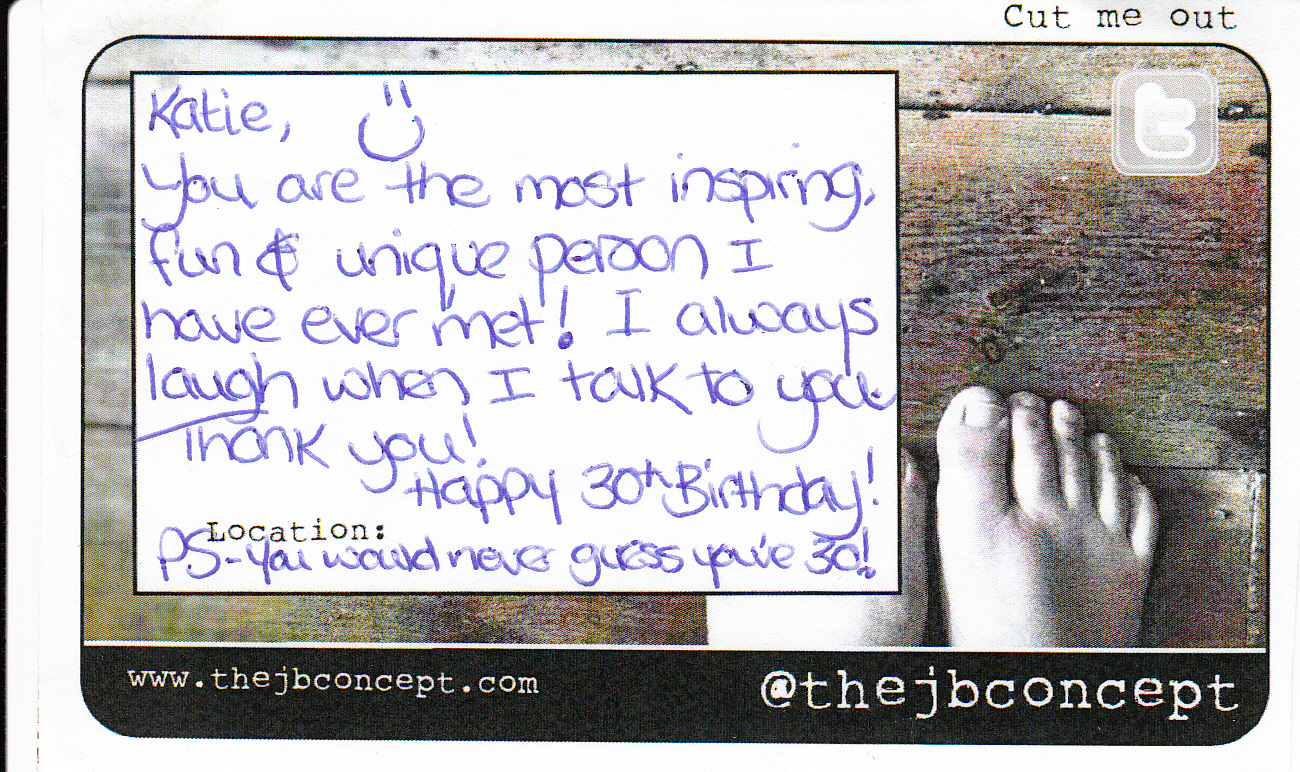 Cut me out
Katie,
You are the most inspiring,
fun & unique person I
have ever met! I always
laugh when I talk to you.
Thank you!
Happy 30th Birthday!
Location:
PS-You would never guess you're 30!
www.thejbconcept.com
@thejbconcept